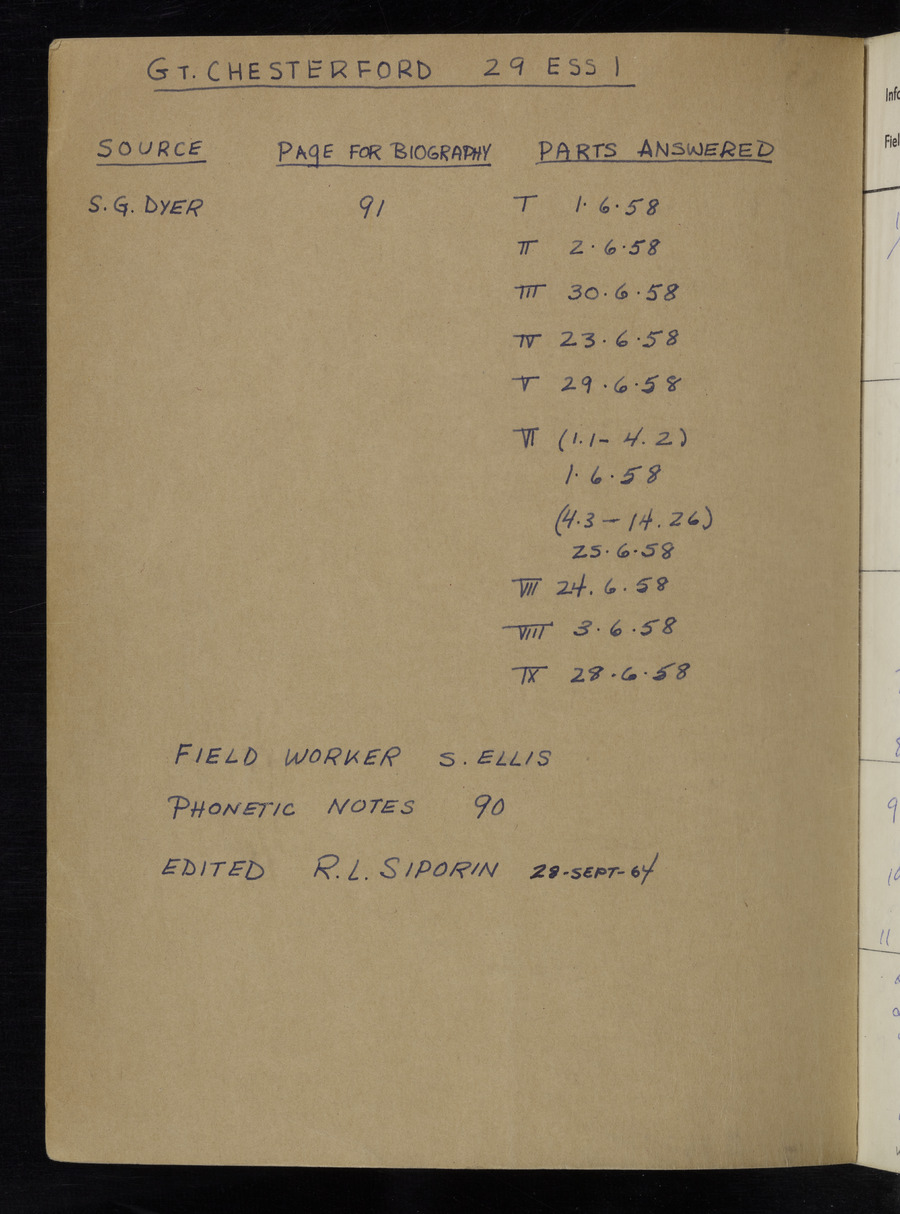 GT. CHESTERFORD 29 ESS 1
SOURCE PAGE FOR BIOGRAPHY PARTS ANSWERED
S.G. DYER 91 I 1.6.58
II 2.6.58
III 30.6.58
IV 23.6.58
V 29.6.58
VI (1.1- 4.2)
1.6.58
(4.3 - 14.26)
25.6.58
VII 24.6.58
VIII 3.6.58
IX 28.6.58
FIELD WORKER S. ELLIS
PHONETIC NOTES 90
EDITED R.L. SIPORIN 28-SEPT-64
9
11